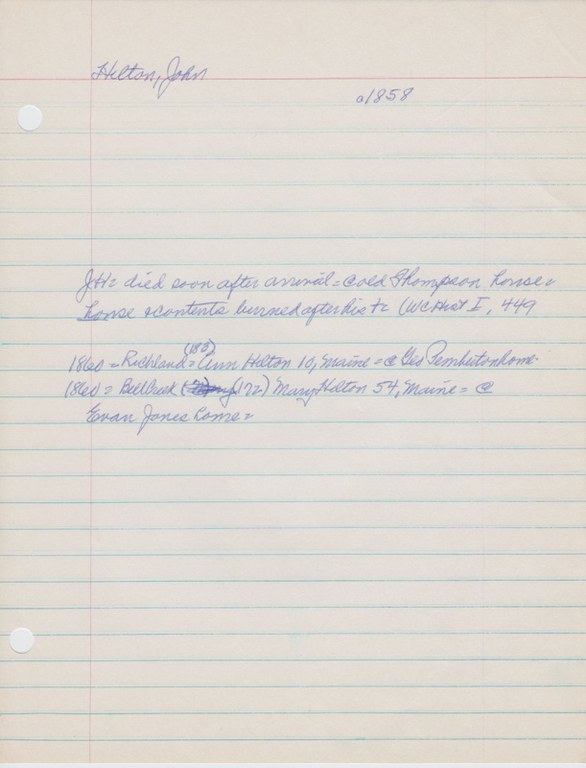 Hilton, John
a1858
JH= died soon after arrival = @ old Thompson house=
house & contents burned after his + = (WC Hist I, 449
(180)
1860 = Richland = Ann Hilton 10, Maine = @ Geo Pemberton home.
1860 = Bell Creek (172) Mary Hilton 54, Maine = @
Evan Jones home =